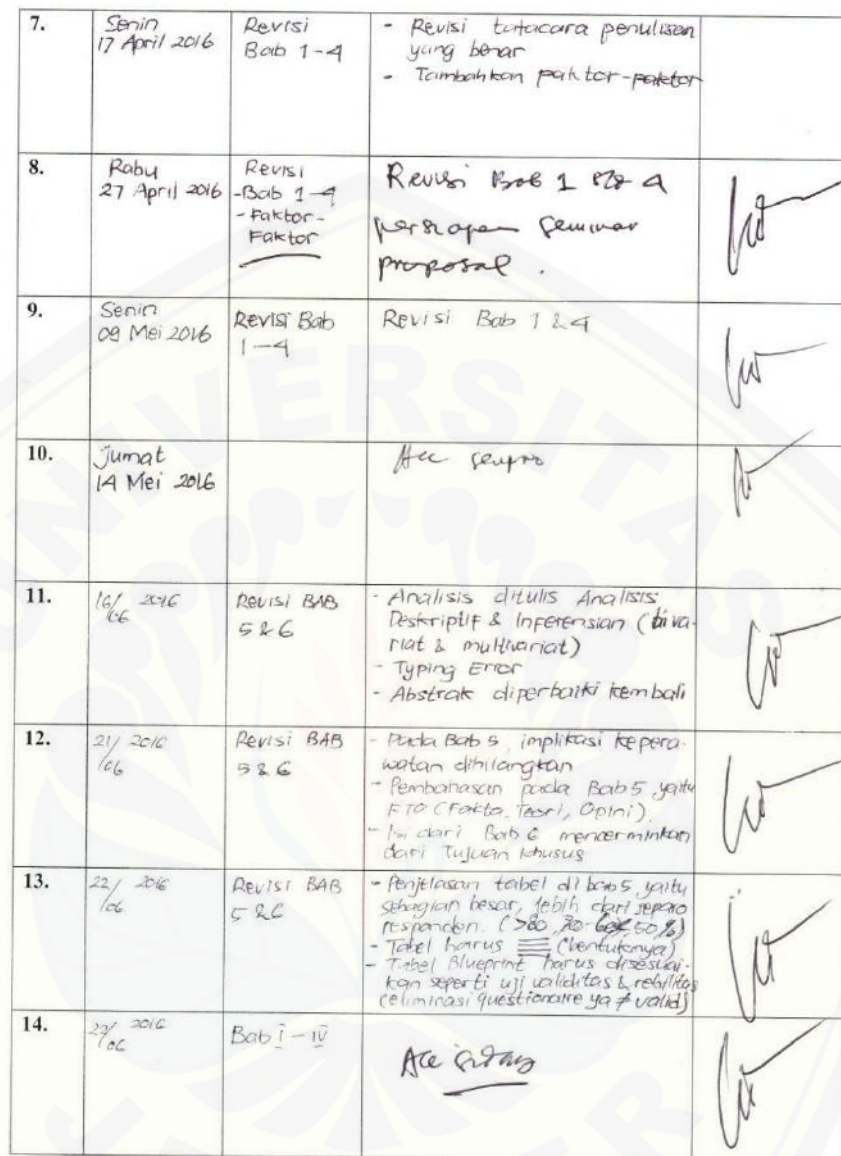 7.
Senin
17 April 2016
Revisi
Bab 1-4
- Revisi tatacara penulisan
yang benar
- Tambahkan paktor-paktor
8.
Rabu
27 April 2016
Revisi
-Bab 1-4
-Faktor-
Faktor
Revisi Bab 1 4
persiapan seminar
proposal.
9.
Senin
09 Mei 2016
Revisi Bab
1-4
Revisi Bab 1 & 4
10.
Jumat
14 Mei 2016
Acc sempro
11.
16/06 2016
Revisi BAB
5 & 6
- Analisis ditulis Analisis
Deskriptif & Inferensian (biva-
riat & multivariat)
- Typing Error
- Abstrak diperbaiki kembali
12.
21/06 2016
Revisi BAB
5 & 6
- Pada Bab 5, implikasi kepera-
watan dihilangkan
- Pembahasan pada Bab 5 yaitu
FTO (Fakta, Teori, Opini).
- Isi dari Bab 6 mencerminkan
dari Tujuan khusus
13.
22/06 2016
Revisi BAB
5 & 6
- Penjelasan tabel di bab 5 yaitu
sebagian besar, lebih dari separo
responden. (>80, 50%)
- Tabel harus (bentuknya)
- Tabel Blueprint harus disesuai-
kan seperti uji validitas & rebilitas
(eliminasi questionaire yg ≠ valid)
14.
/06 2016
Bab I - IV
Acc sidang
UNIVERSITAS